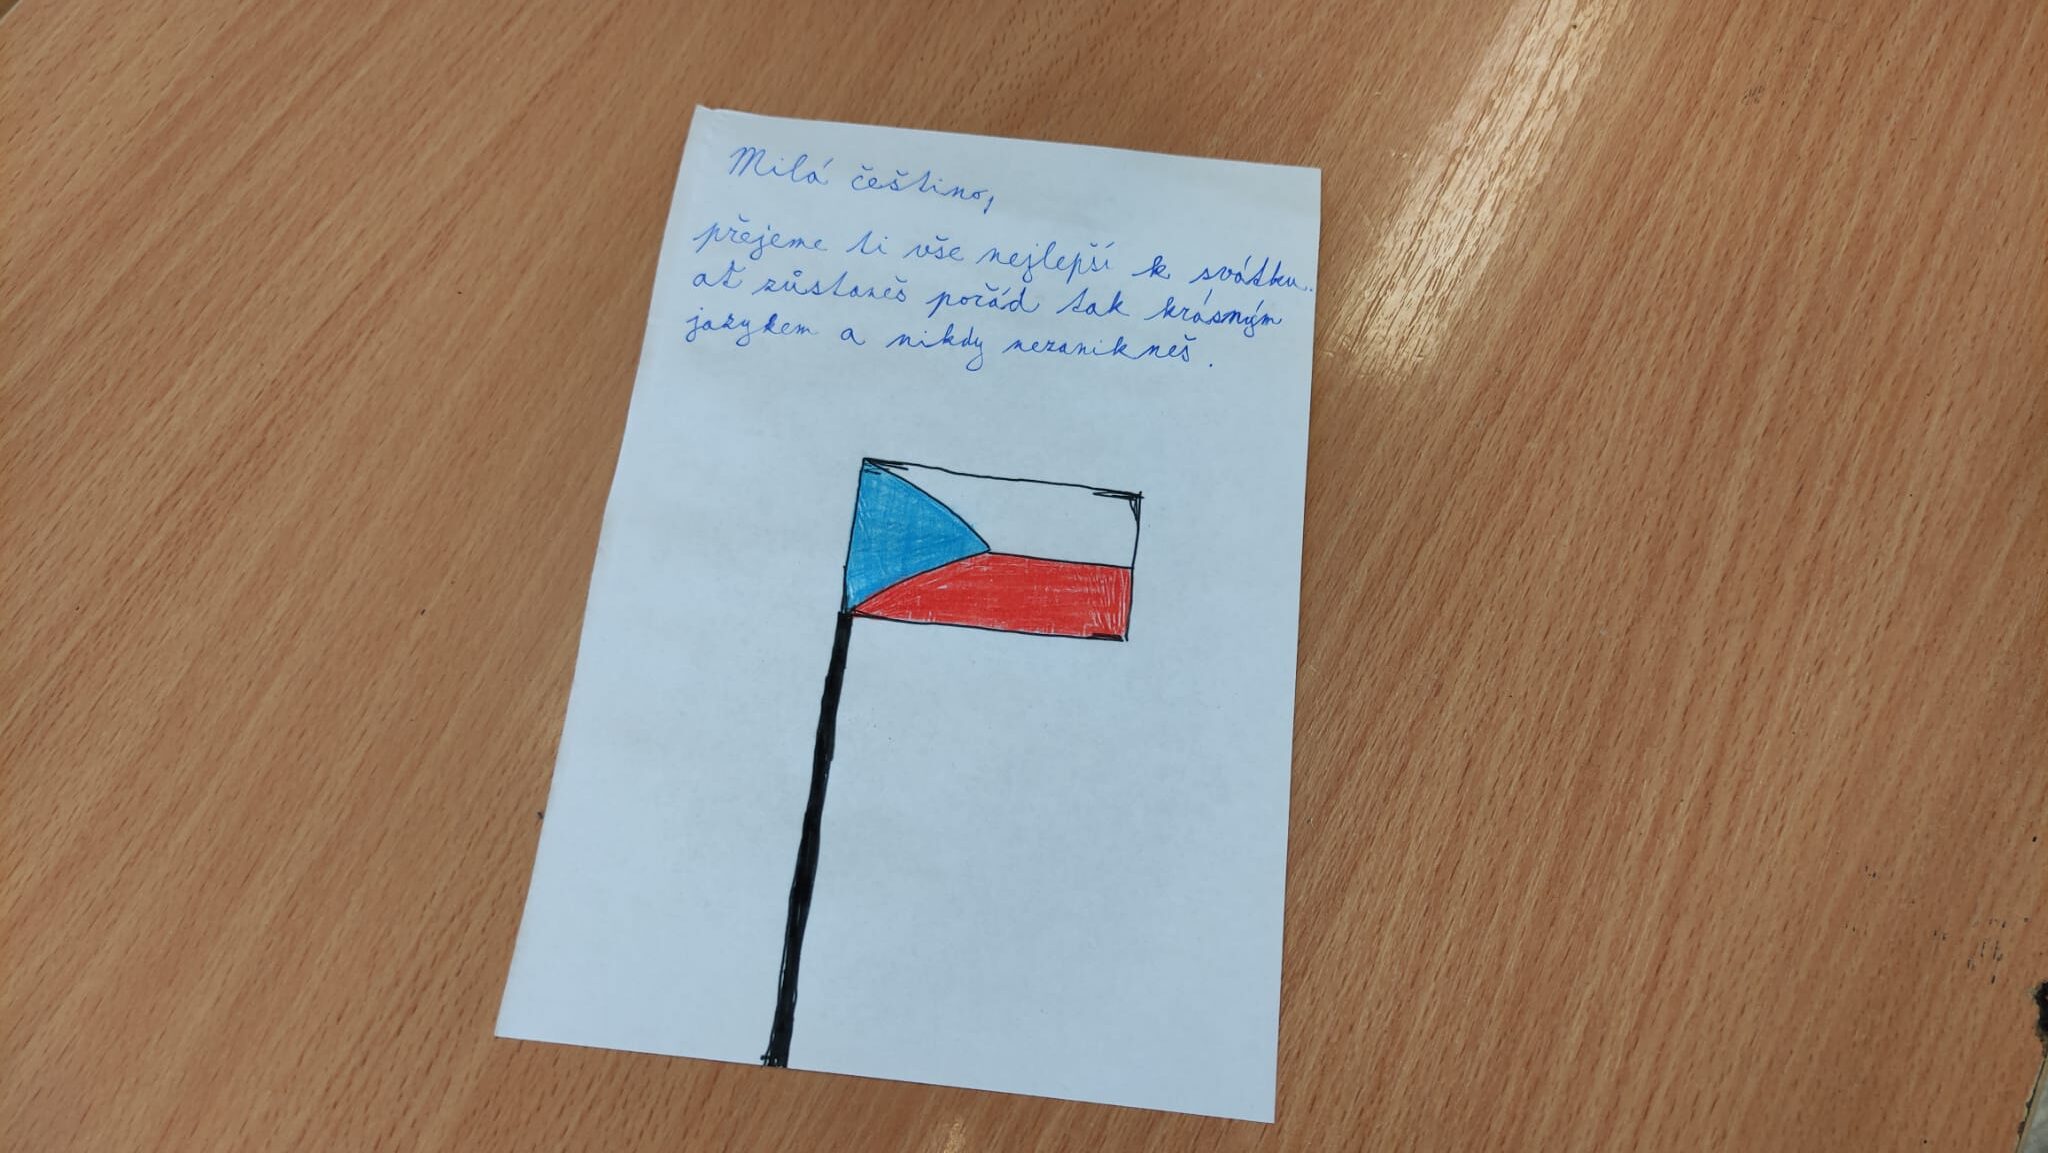 Milá češtino,
přejeme ti vše nejlepší k svátku.
ať zůstaneš pořád tak krásným
jazykem a nikdy nezanikneš.